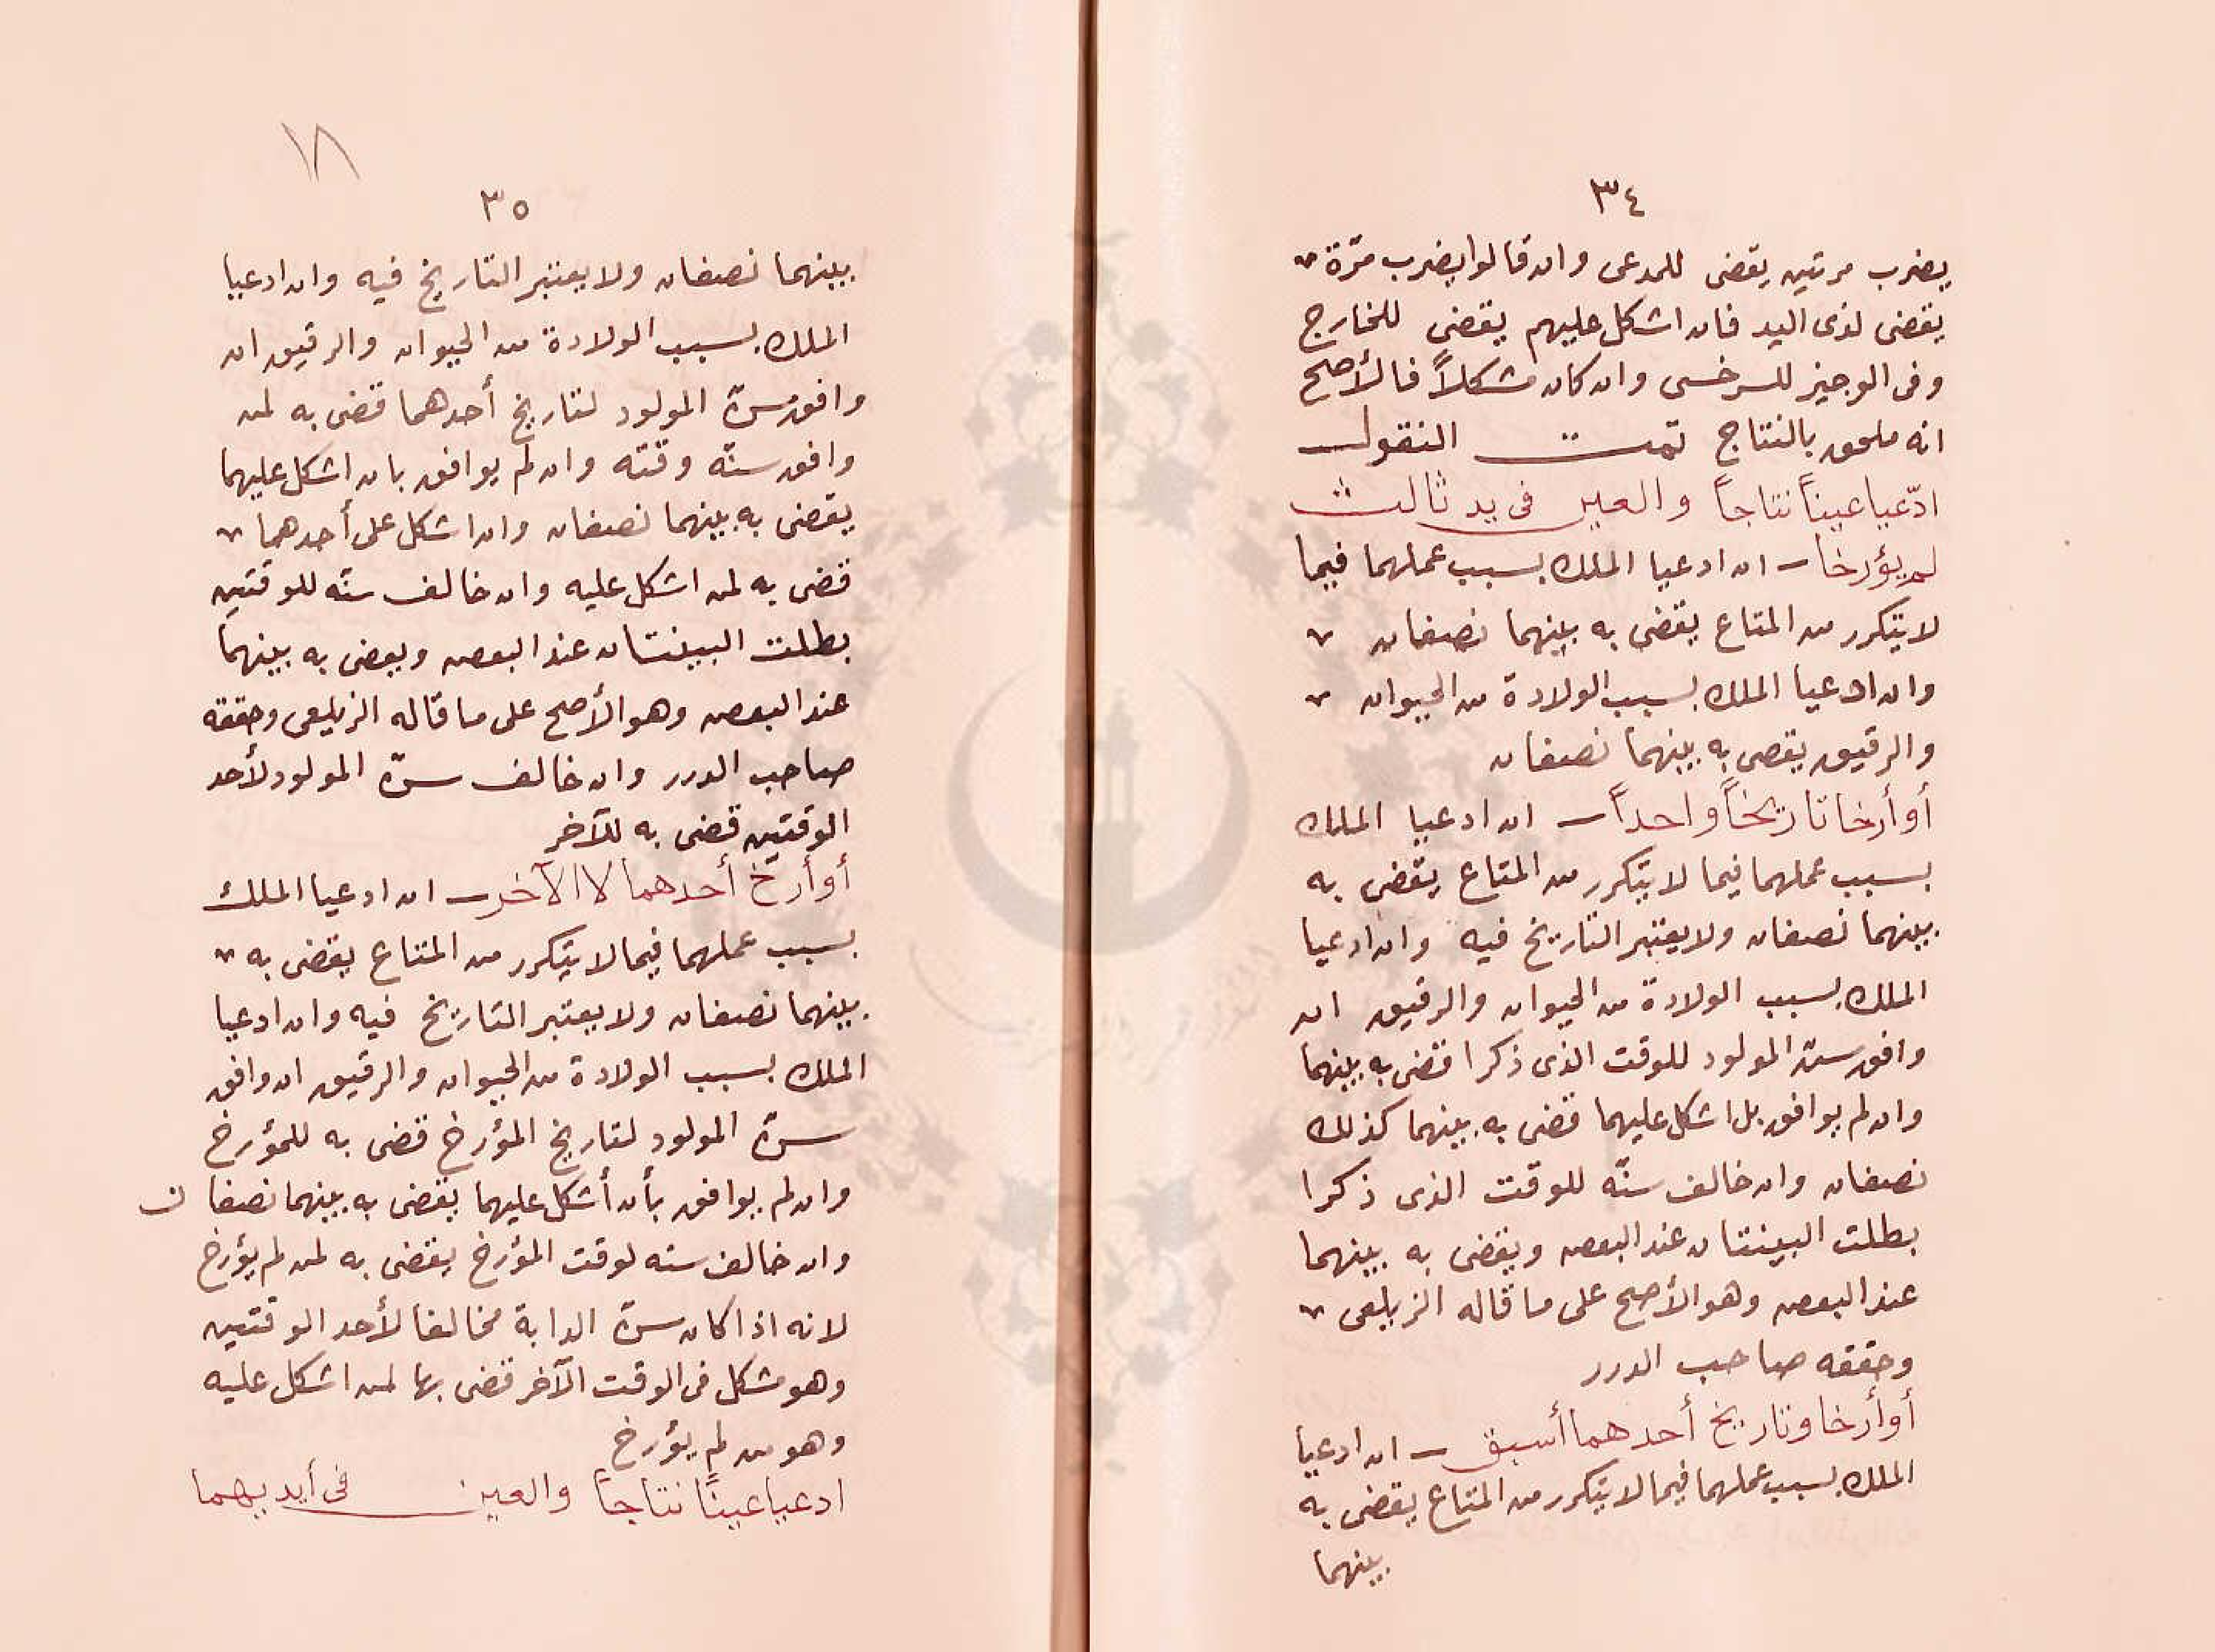 ٣٤
يضرب مرتين يقضى للمدعى وان قالوا يضرب مرّة
يقضى لذى اليد فان اشكل عليهم يقضى للخارج
وفى الوجيز للسرخسى وان كان مشكلاً فالأصح
انه ملحق بالنتاج تمت النقول
ادّعيا عيناً نتاجاً والعين فى يد ثالث
لم يؤرخا ـ ان ادعيا الملك بسبب عملهما فيما
لا يتكرر من المتاع يقضى به بينهما نصفان
وان ادعيا الملك بسبب الولادة من الحيوان
والرقيق يقضى به بينهما نصفان
أو أرخا تاريخاً واحداً ـ ان ادعيا الملك
بسبب عملهما فيما لا يتكرر من المتاع يقضى به
بينهما نصفان ولا يعتبر التاريخ فيه وان ادعيا
الملك بسبب الولادة من الحيوان والرقيق ان
وافق سن المولود للوقت الذى ذكرا قضى به بينهما
وان لم يوافق بل اشكل عليهما قضى به بينهما كذلك
نصفان وان خالف سنّه للوقت الذى ذكرا
بطلت البينتان عند البعض ويقضى به بينهما
عند البعض وهو الأصح على ما قاله الزيلعى
وحققه صاحب الدرر
أو أرخا وتاريخ أحدهما أسبق ـ ان ادعيا
الملك بسبب عملهما فيما لا يتكرر من المتاع يقضى به
بينهما
١٨
٣٥
بينهما نصفان ولا يعتبر التاريخ فيه وان ادعيا
الملك بسبب الولادة من الحيوان والرقيق ان
وافق سنّ المولود لتاريخ أحدهما قضى به لمن
وافق سنّه وقته وان لم يوافق بان اشكل عليهما
يقضى به بينهما نصفان وان اشكل على أحدهما
قضى به لمن اشكل عليه وان خالف سنّه للوقتين
بطلت البينتان عند البعض ويقضى به بينهما
عند البعض وهو الأصح على ما قاله الزيلعى وحققه
صاحب الدرر وان خالف سنّ المولود لأحد
الوقتين قضى به للآخر
أو أرّخ أحدهما لا الآخر ـ ان ادعيا الملك
بسبب عملهما فيما لا يتكرر من المتاع يقضى به
بينهما نصفان ولا يعتبر التاريخ فيه وان ادعيا
الملك بسبب الولادة من الحيوان والرقيق ان وافق
سنّ المولود لتاريخ المؤرخ قضى به للمؤرخ
وان لم يوافق بأن أشكل عليهما يقضى به بينهما نصفان
وان خالف سنه لوقت المؤرخ يقضى به لمن لم يؤرخ
لانه اذا كان سنّ الدابة مخالفا لأحد الوقتين
وهو مشكل فى الوقت الآخر قضى بها لمن اشكل عليه
وهو من لم يؤرخ
ادعيا عيناً نتاجاً والعين فى أيديهما